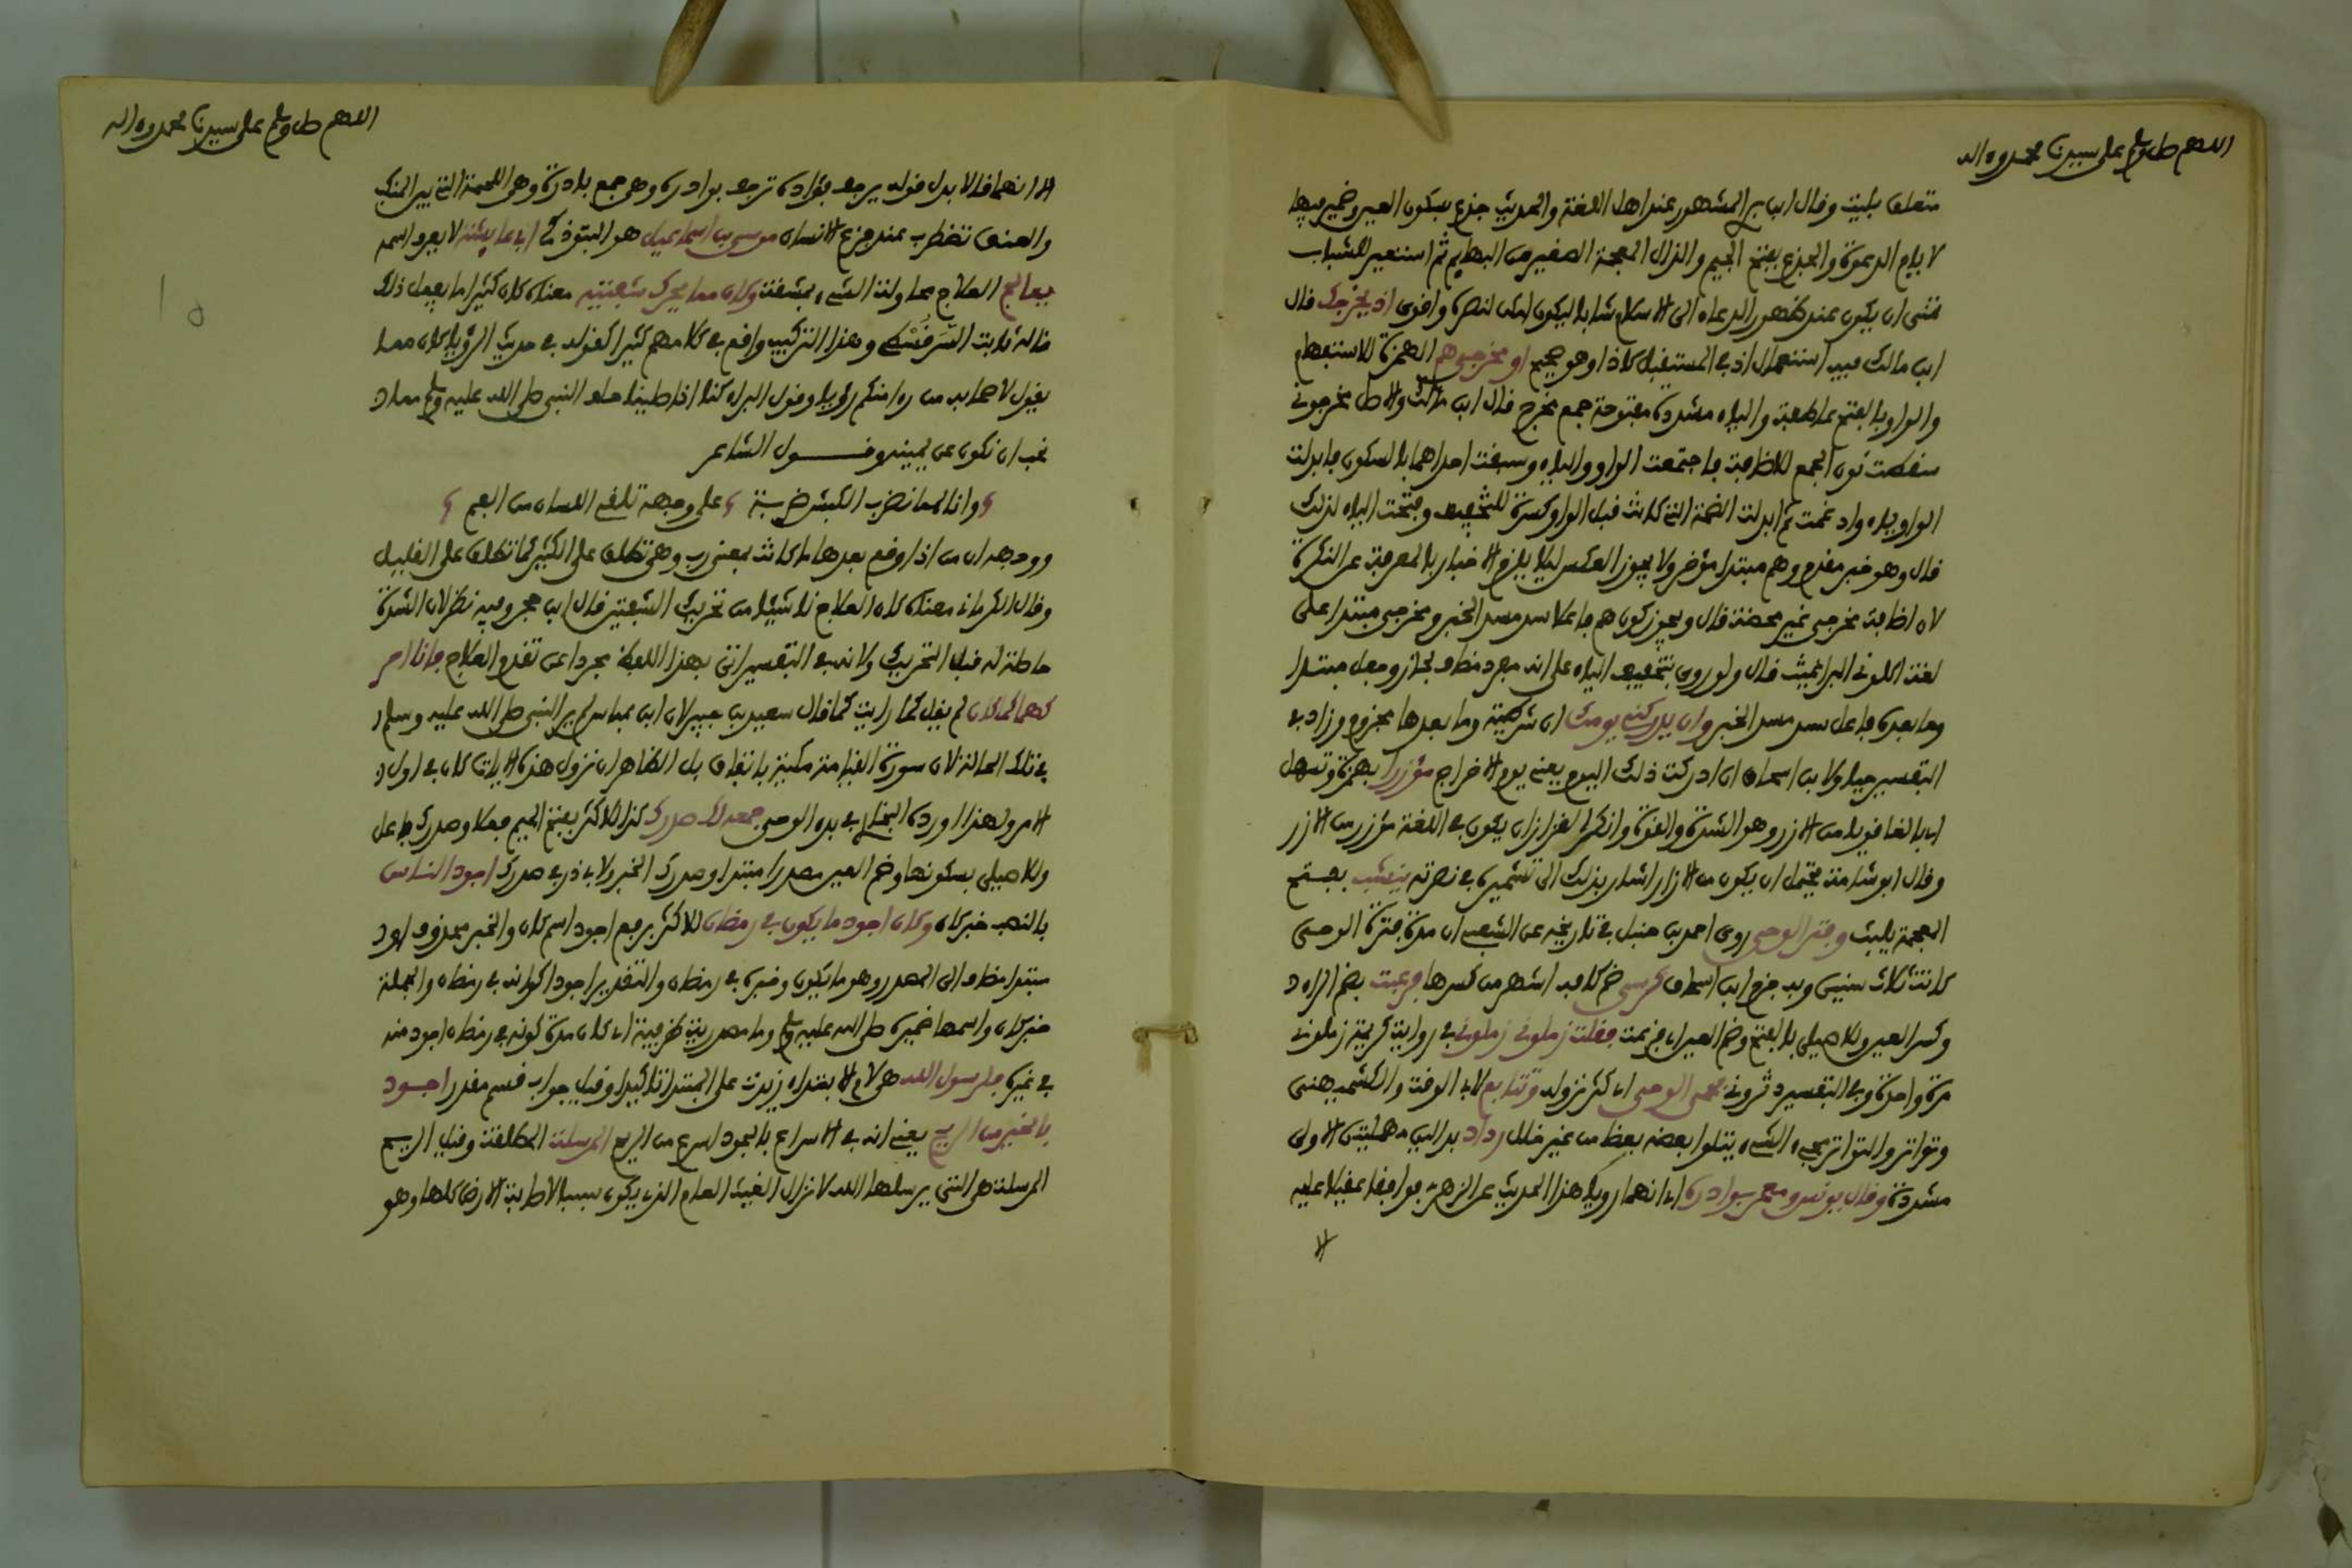 اللهم صل وسلم على سيدنا محمد وءاله
متعلق بليت وقال ابن بر المشهور عند اهل اللغة والحديث جذع بسكون العين وضمير فيها
لايام الدعوة والجذع بفتح الجيم والذال المعجمة الصغير من البهايم ثم استعير للشباب
تمنى ان يكون عند ظهور الدعاء الى الاسلام شابا ليكون امكن لنصره واقوى اذ يخرجك قال
ابن مالك فيه استعمال اذ في المستقبل كاذا وهو صحيح او مخرجي هم الهمزة للاستفهام
والواو بالفتح عاطفة والياء مشددة مفتوحة جمع مخرج قال ابن مالك والاصل مخرجوني
سقطت نون الجمع للاضافة فاجتمعت الواو والياء وسبقت احداهما بالسكون فابدلت
الواو ياء وادغمت ثم ابدلت الضمة التي كانت قبل الواو كسرة للتخفيف وفتحت الياء لذلك
قال وهو خبر مقدم وهم مبتدا مؤخر ولا يجوز العكس ليلا يلزم الاخبار بالمعرفة عن النكرة
لان اضافة مخرجي غير محضة قال ويجوز كون هم فاعلا سد مسد الخبر ومخرجي مبتدا على
لغة اكلوني البراغيث قال ولو روي بتخفيف الياء على انه مفرد مضاف لجاز وجعل مبتدا
وما بعده فاعل سد مسد الخبر وان يدركني يومك ان شرطية وما بعدها مجزوم وزاد في
التفسير حيا ولابن اسحاق ان ادركت ذلك اليوم يعني يوم الاخراج مؤزرا بهمزة وتسهل
اي بالغا قويا من الازر وهو الشدة والقوة وانكر القزاز ان يكون في اللغة مؤزر من الازر
وقال ابو شامة يحتمل ان يكون من الازار اشار بذلك الى تشميره في نصرته ينشب بفتح
المعجمة يلبث وفتر الوحي روى احمد بن حنبل في تاريخه عن الشعبي ان مدة فترة الوحي
كانت ثلاث سنين وبه جزم ابن اسحاق كرسي ضم كافه اشهر من كسرها فرعبت بضم الراء
وكسر العين وللاصيلي بالفتح وضم العين اي فزعت فقلت زملوني زملوني في رواية كريمة زملوني
مرة واحدة وفي التفسير دثروني فحمي الوحي اي كثر نزوله وتتابع لابي الوقت والكشميهني
وتواتر والتواتر مجيء الشيء يتلوا بعضه بعضا من غير خلل رداد بدالين مهملتين الاولى
مشددة وقال يونس ومعمر بوادره اي انهما رويا هذا الحديث عن الزهري فوافقا عقيلا عليه
الا
اللهم صل وسلم على سيدنا محمد وءاله
الا انهما قالا بدل قوله يرجف فؤاده ترجف بوادره وهي جمع بادرة وهي اللحمة التي بين المنكب
والعنق تضطرب عند فزع الانسان موسى بن اسماعيل هو التبوذكي ابن ابي عايشة لا يعرف اسمه
يعالج العلاج محاولة الشيء بمشقة وكان مما يحرك شفتيه معناه كان كثيرا ما يفعل ذلك
قاله ثابت السرقسطي وهذا التركيب واقع في كلامهم كثيرا كقوله في حديث الرؤيا كان مما
يقول لاصحابه من رءا منكم رؤيا وقول البراء كنا اذا صلينا خلف النبي صلى الله عليه وسلم مما
نحب ان نكون عن يمينه وقول الشاعر
وانا لمما نضرب الكبش ضربة على وجهه تلقي اللسان من الفم
ووجهه ان من اذا وقع بعدها ما كانت بمعنى رب وهي تطلق على الكثير كما تطلق على القليل
وقال الكرماني معناه كان العلاج ناشيئا من تحريك الشفتين قال ابن حجر وفيه نظر لان الشدة
حاصلة له قبل التحريك ولانه في التفسير اتى بهذا اللفظ مجردا عن تقدم العلاج فانا احر
كهما لما كان لم يقل كما رايت كما قال سعيد بن جبير لان ابن عباس لم ير النبي صلى الله عليه وسلم
في تلك الحالة لان سورة القيامة مكية باتفاق بل الظاهر ان نزول هذه الايات كان في اول
الامر ولهذا اورده البخاري في بدء الوحي جمعه لك صدرك كذا للاكثر بفتح الجيم فعلا وصدرك فاعل
وللاصيلي بسكونها وضم العين مصدرا مبتدا وصدرك الخبر ولابي ذر في صدرك اجود الناس
بالنصب خبر كان وكان اجود ما يكون في رمضان للاكثر برفع اجود اسم كان والخبر محذوف او
مبتدا مضاف الى المصدر وهو ما يكون وخبره في رمضان والتقدير اجود اكوانه في رمضان والجملة
خبر كان واسمها ضميره صلى الله عليه وسلم وما مصدرية ظرفية اي كان مدة كونه في رمضان اجود منه
في غيره فلرسول الله هي لام الابتداء زيدت على المبتدا تاكيدا وقيل جواب قسم مقدر اجود
بالخير من الريح يعني انه في الاسراع بالجود اسرع من الريح المرسلة المطلقة وقيل الريح
المرسلة هي التي يرسلها الله لانزال الغيث العام الذي يكون سببا لاصابة الارض كلها وهو